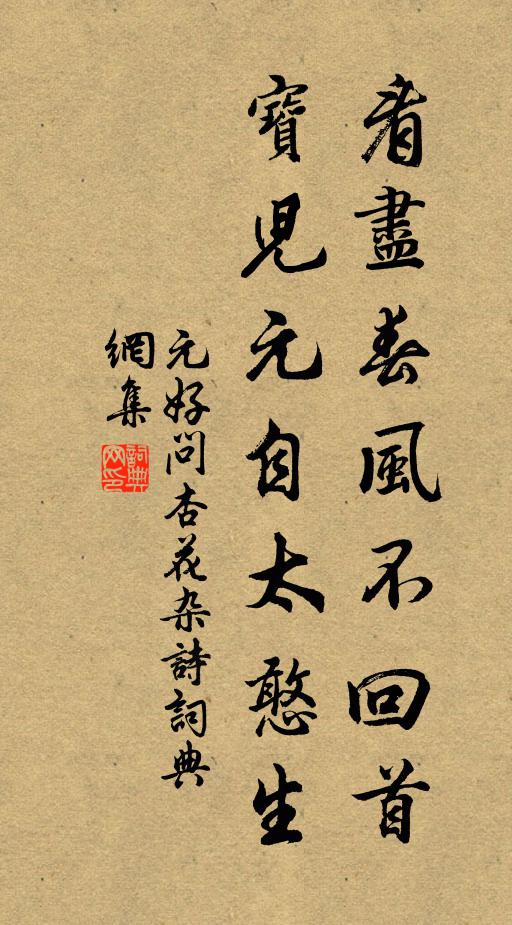 看盡春風不回首
寶児元自太憨生
元好问杏花杂詩詞典
網集
詞典
网印